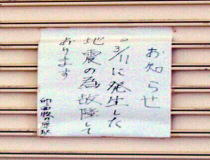 お知らせ
3/11に発生した
地震の為故障して
おります